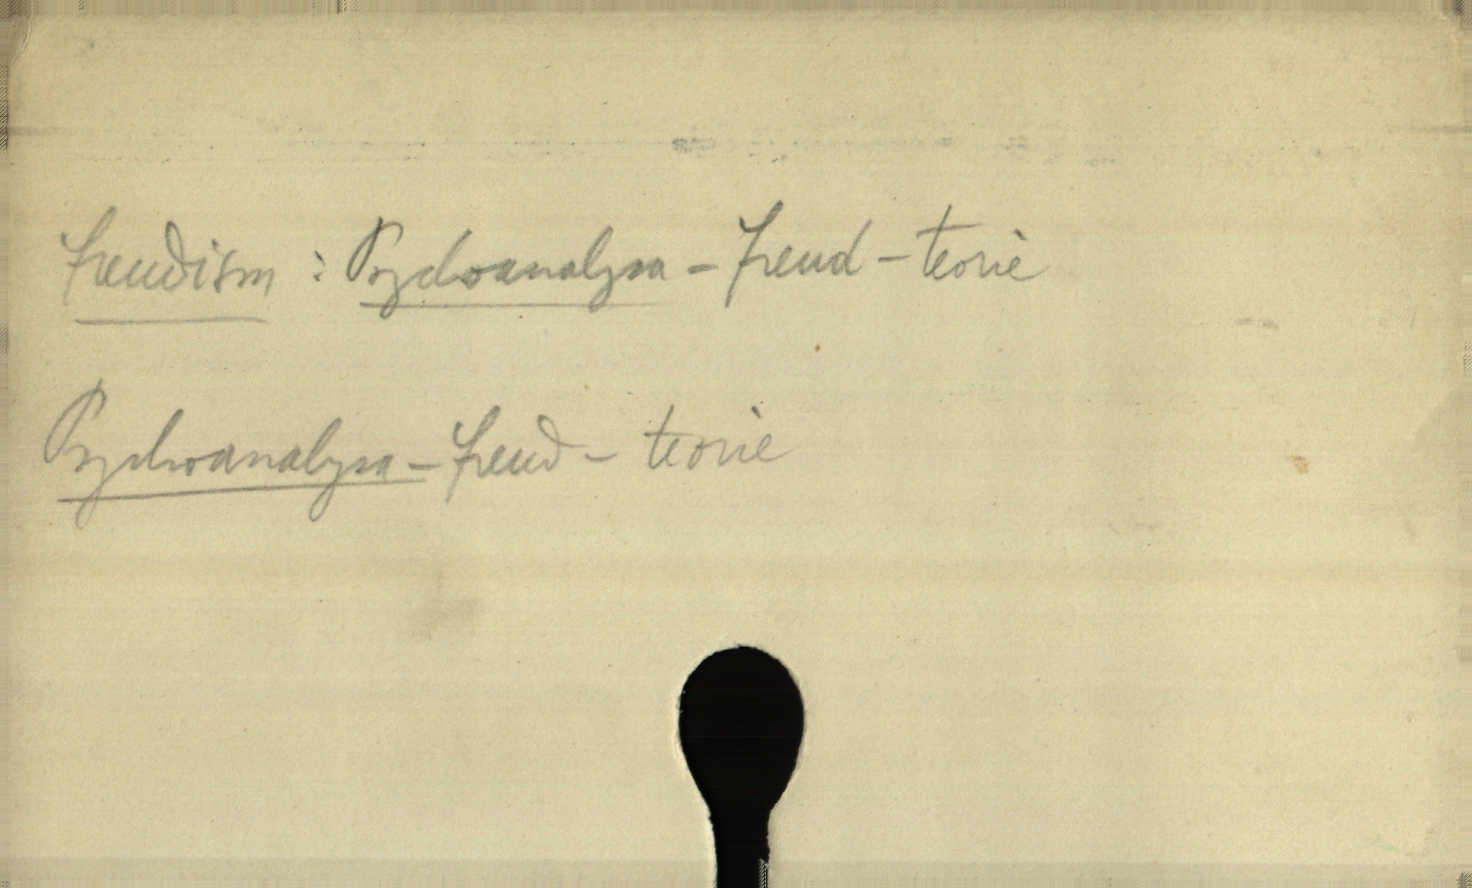 Freudism : Psychoanalysa - Freud - teorie
Psychoanalysa - Freud - teorie